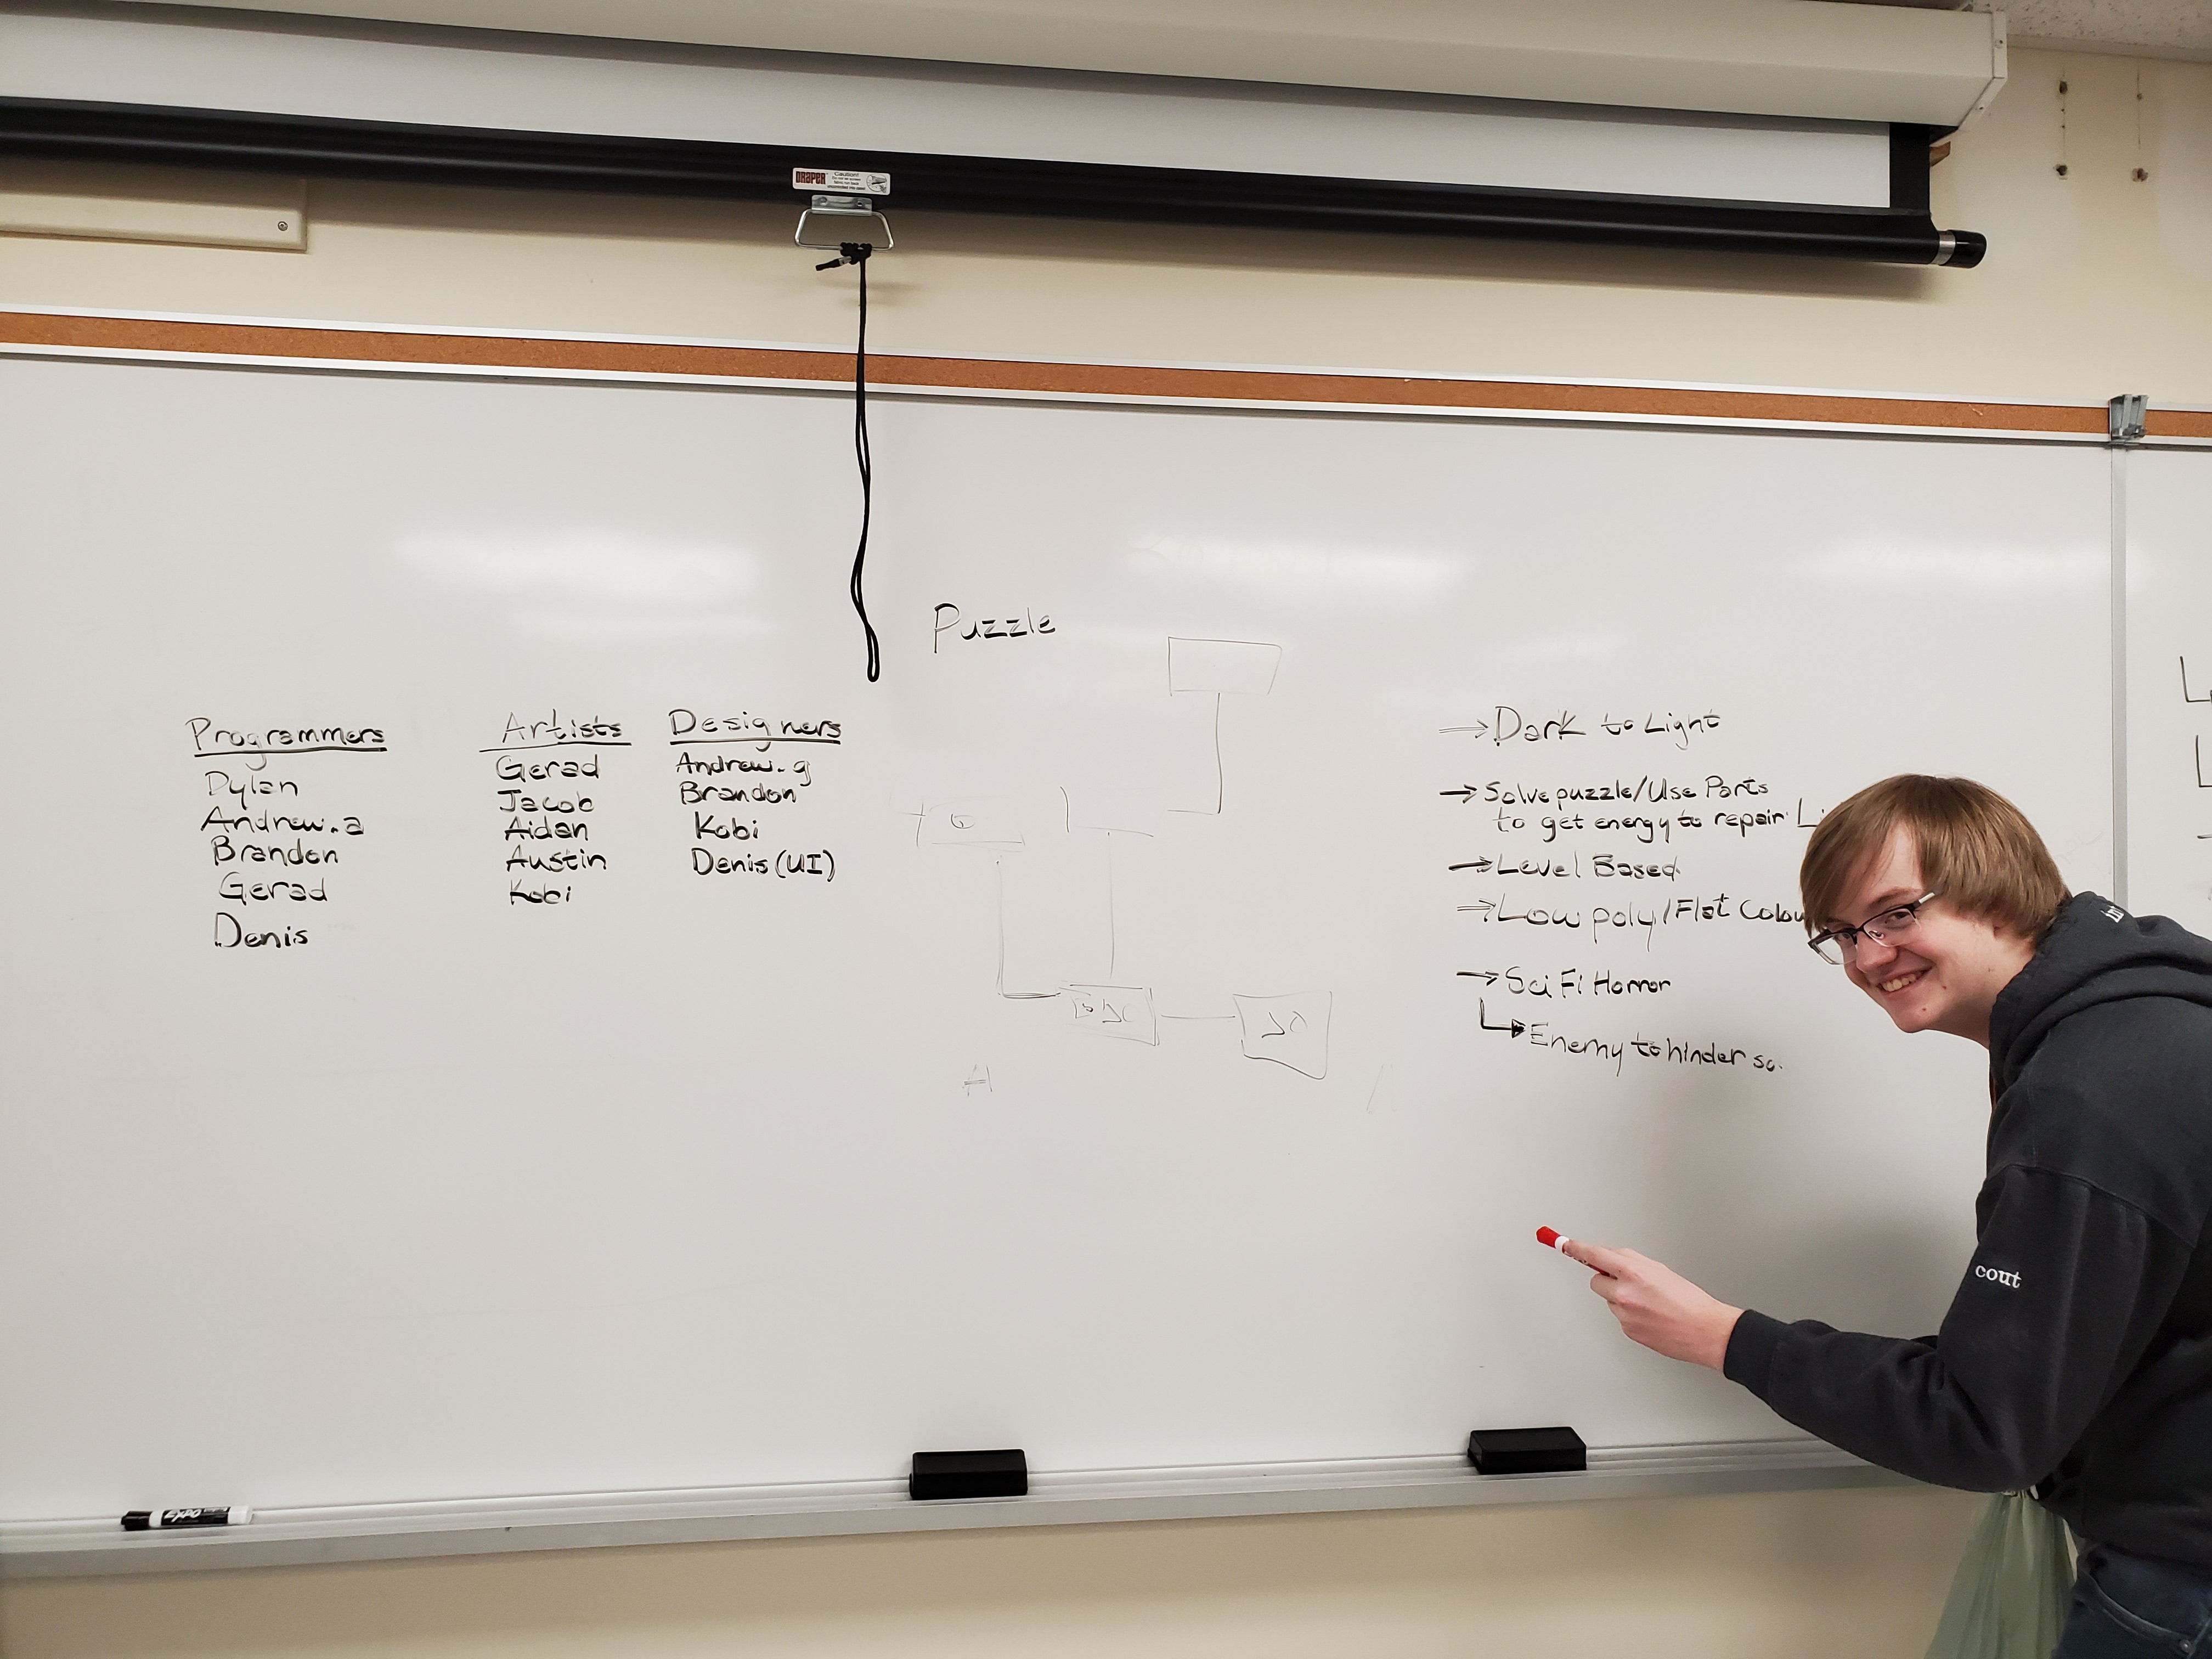 DRAPER
Caution!
Puzzle
Programmers
Dylan
Andrew.a
Brandon
Gerad
Denis
Artists
Gerad
Jacob
Aidan
Austin
Kobi
Designers
Andrew.g
Brandon
Kobi
Denis (UI)
→ Dark to Light
→ Solve puzzle/Use Parts
to get energy to repair
→ Level Based
→ Low poly/Flat Colou
→ Sci Fi Horror
Enemy to hinder
A
cout
EXPO